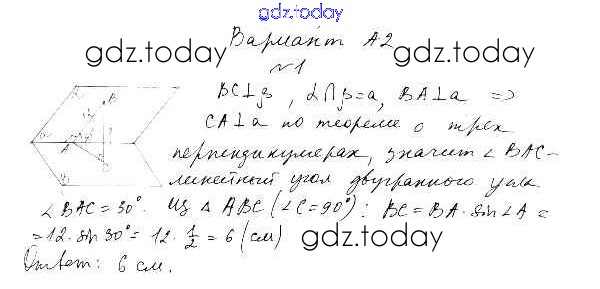 gdz.today
Вариант А2
gdz.today
gdz.today
№1
BC⊥β, α∩β=a, BA⊥a =>
CA⊥a по теореме о трех
перпендикулярах, значит ∠BAC-
линейный угол двугранного угла
∠BAC=30°. Из △ABC (∠C=90°): BC=BA·sin∠A=
=12·sin30°=12·1/2=6(см)
gdz.today
Ответ: 6 см.